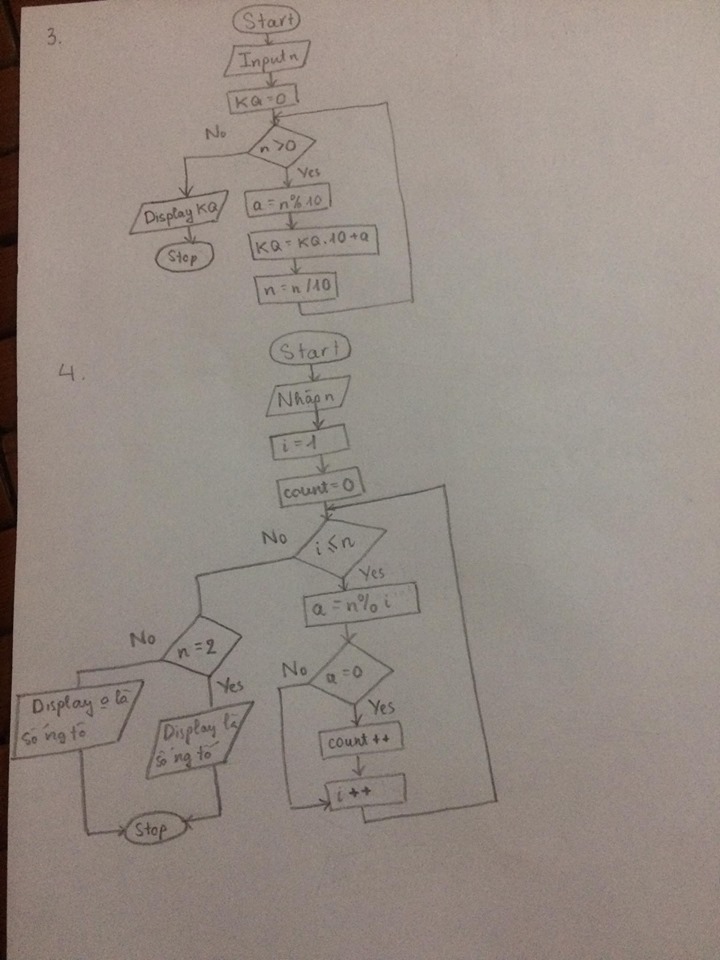 3.
Start
Input n
KQ = 0
n > 0
No
Yes
Display KQ
Stop
a = n % 10
KQ = KQ . 10 + a
n = n / 10
4.
Start
Nhập n
i = 1
count = 0
i ≤ n
No
Yes
a = n % i
n = 2
No
Yes
Display o là
số ng tố
Display là
số ng tố
a = 0
No
Yes
count ++
i ++
Stop